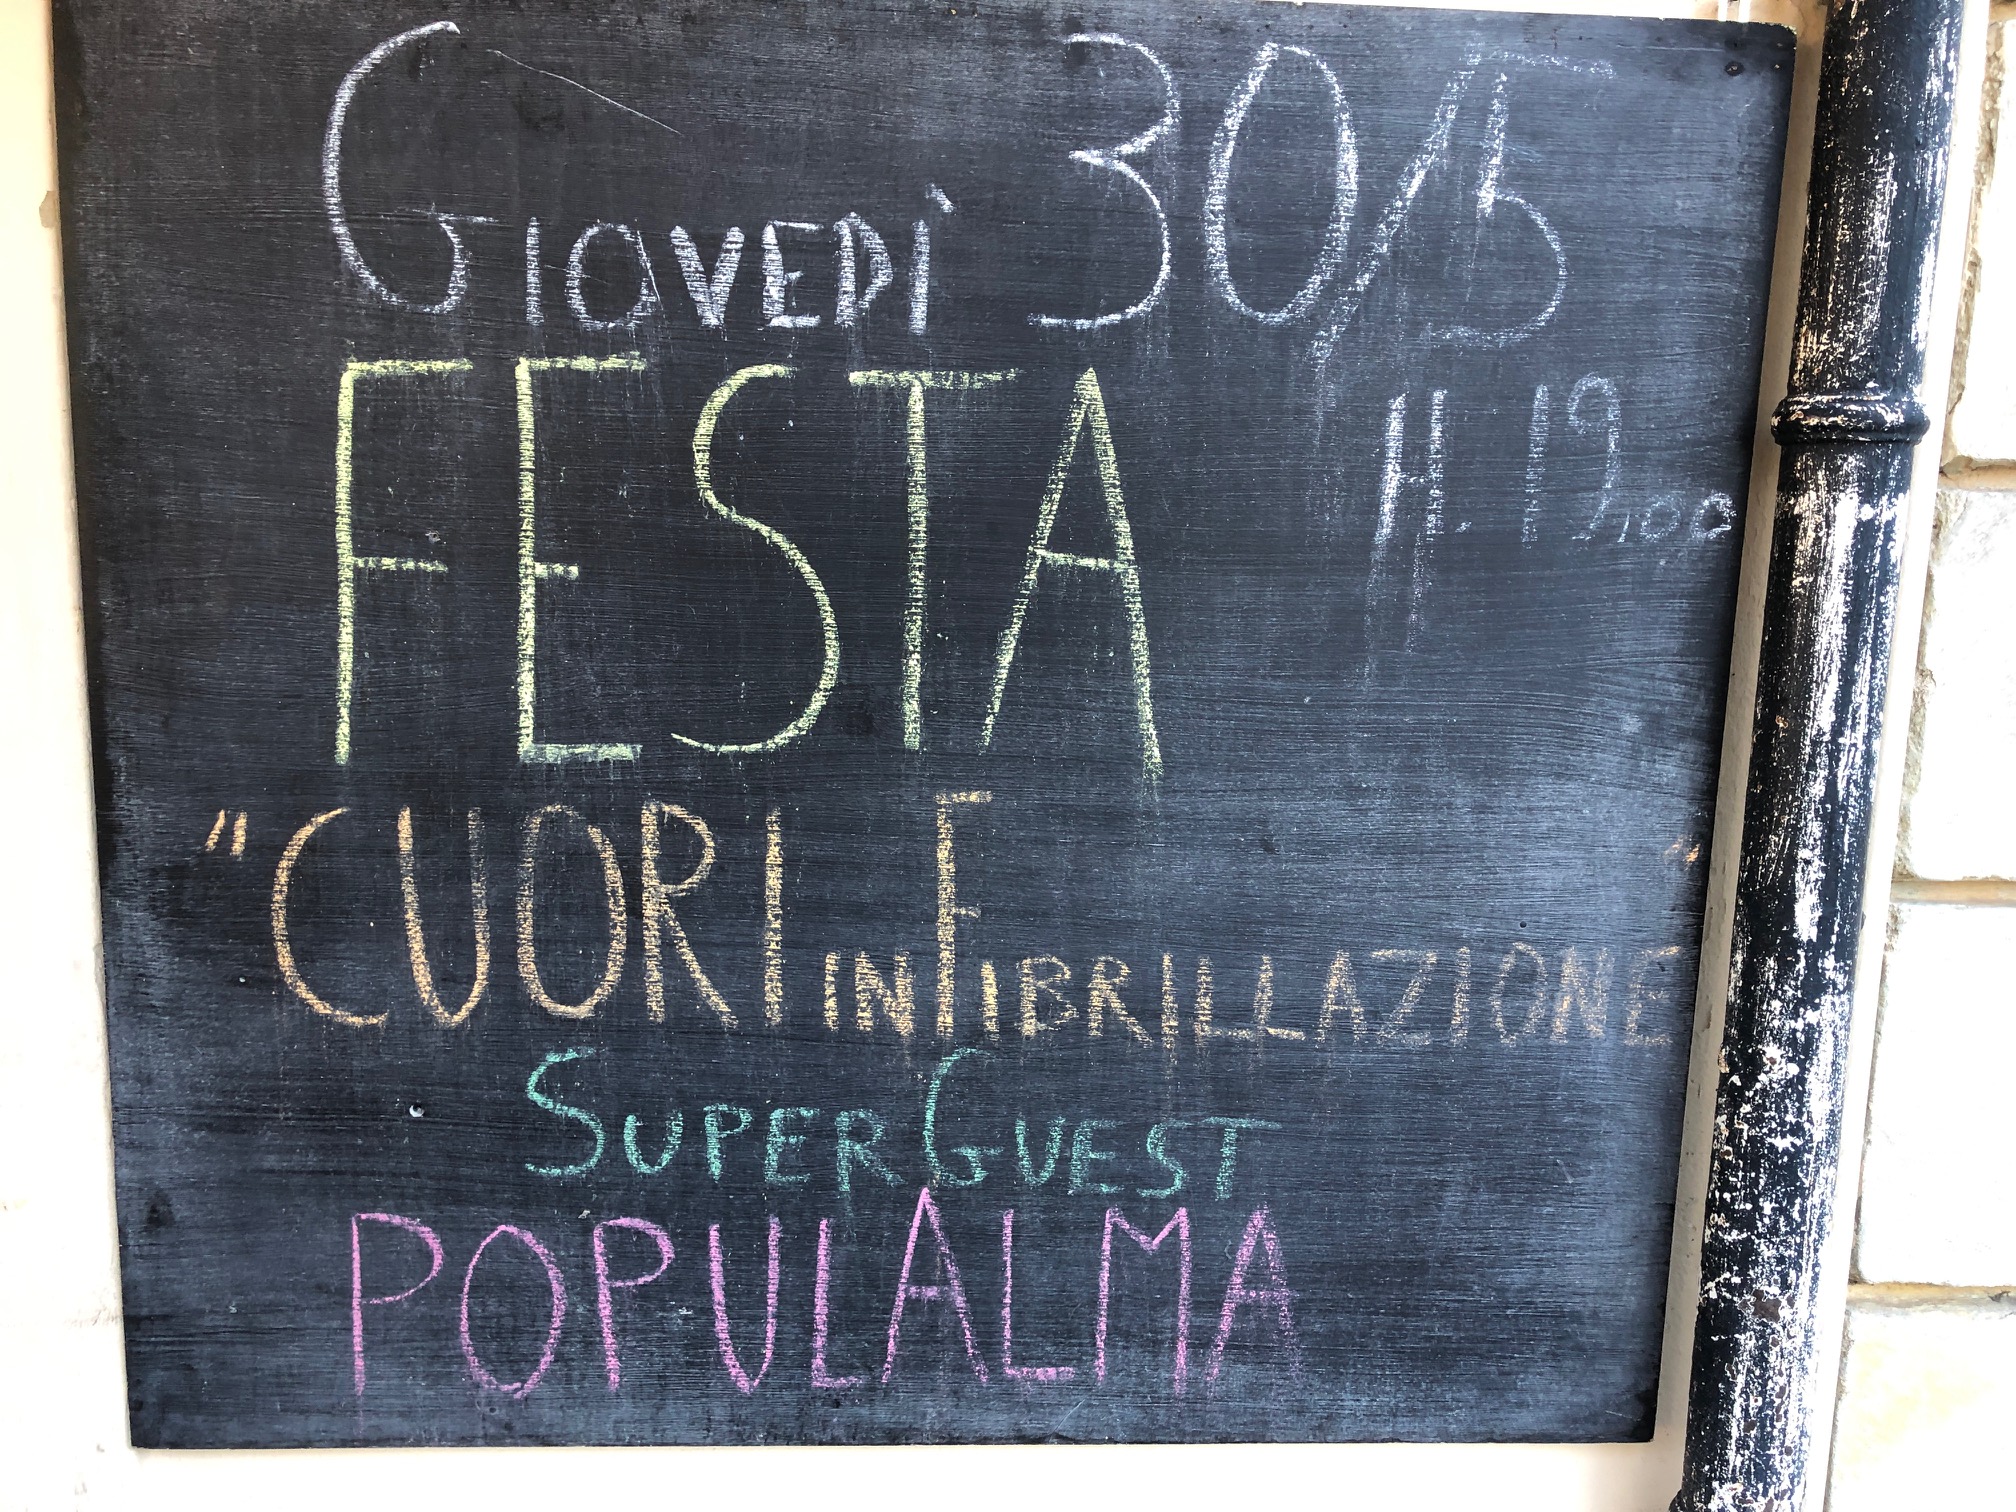 Giovedì 30/5
FESTA
H. 19,00
"CUORI in FIBRILLAZIONE"
SUPER GUEST
POPULALMA